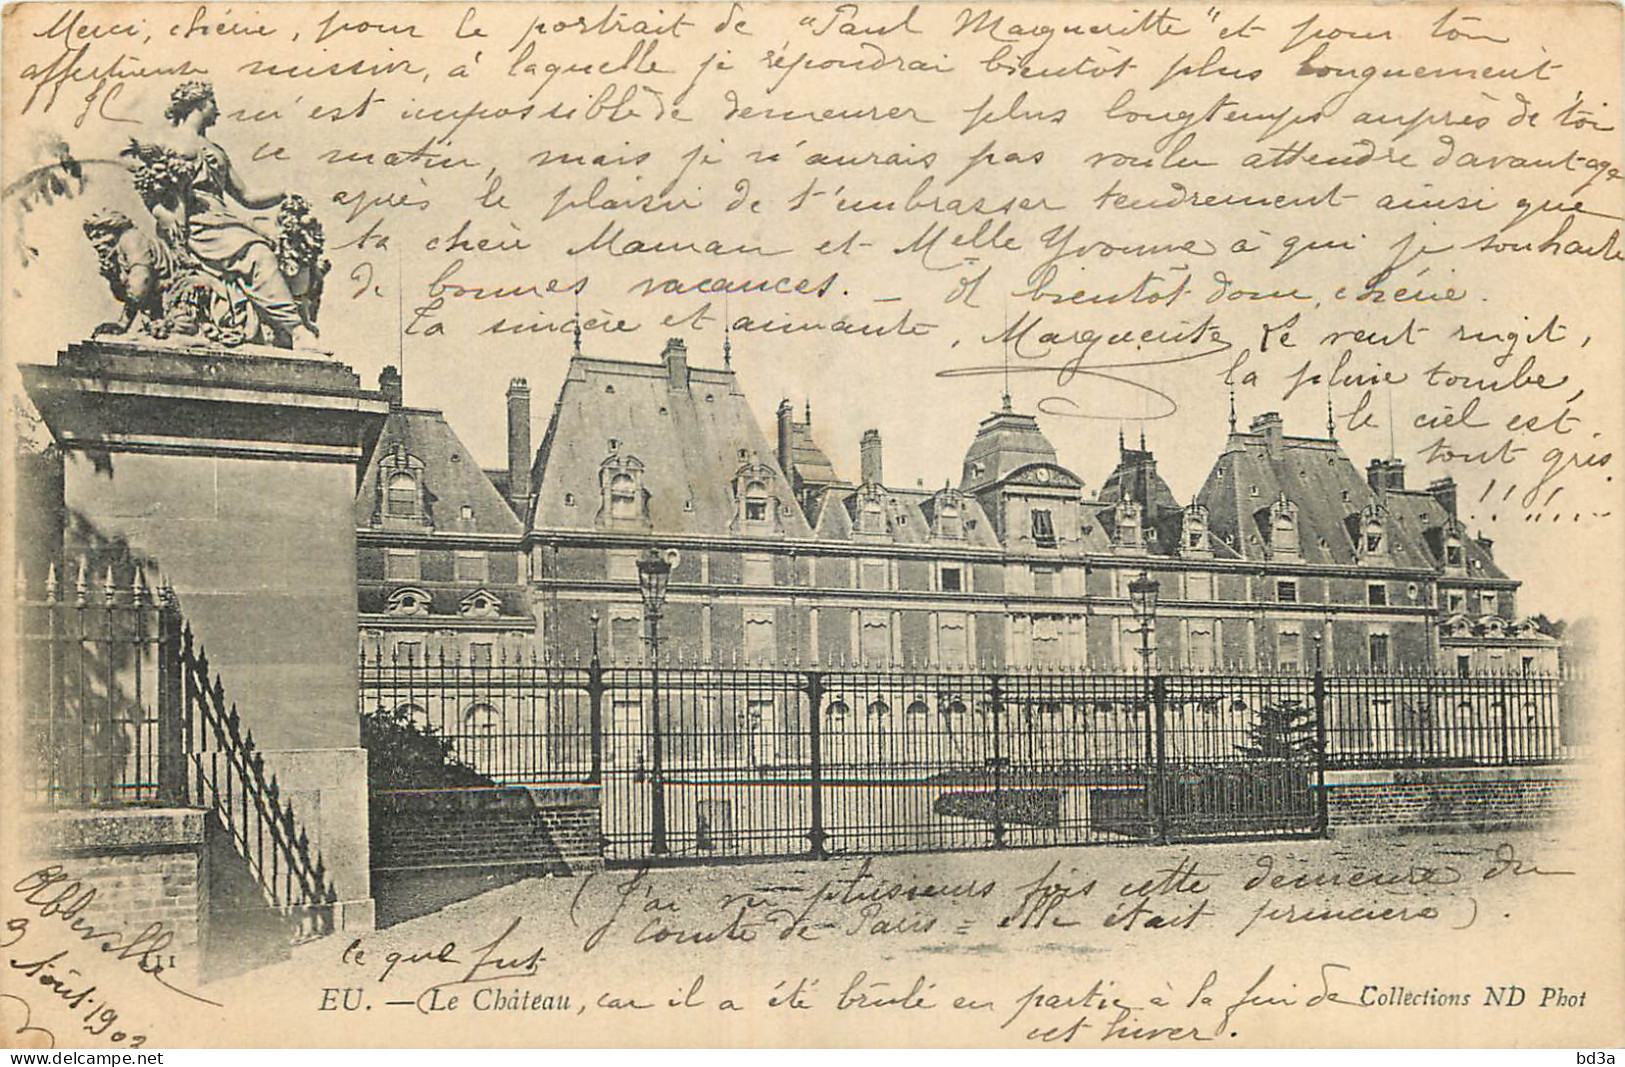 Merci, chérie, pour le portrait de "Paul Margueritte" et pour ton
affectueuse missive, à laquelle je répondrai bientôt plus longuement,
Il m'est impossible de demeurer plus longtemps auprès de toi
ce matin, mais je n'aurais pas voulu attendre davantage
après le plaisir de t'embrasser tendrement ainsi que
ta chère Maman et Melle Yvonne à qui je souhaite
de bonnes vacances. _ à bientôt donc, chérie.
Ta sincère et aimante, Marguerite
Le vent rugit,
la pluie tombe,
le ciel est
tout gris
!!!!...
(J'ai vu plusieurs fois cette demeure du
Comte de Paris = elle était princière).
Abbeville
9 Août 1902
11
ce que fut
EU. — (Le Château, car il a été brûlé en partie à la fin de
cet hiver.
Collections ND Phot
bd3a